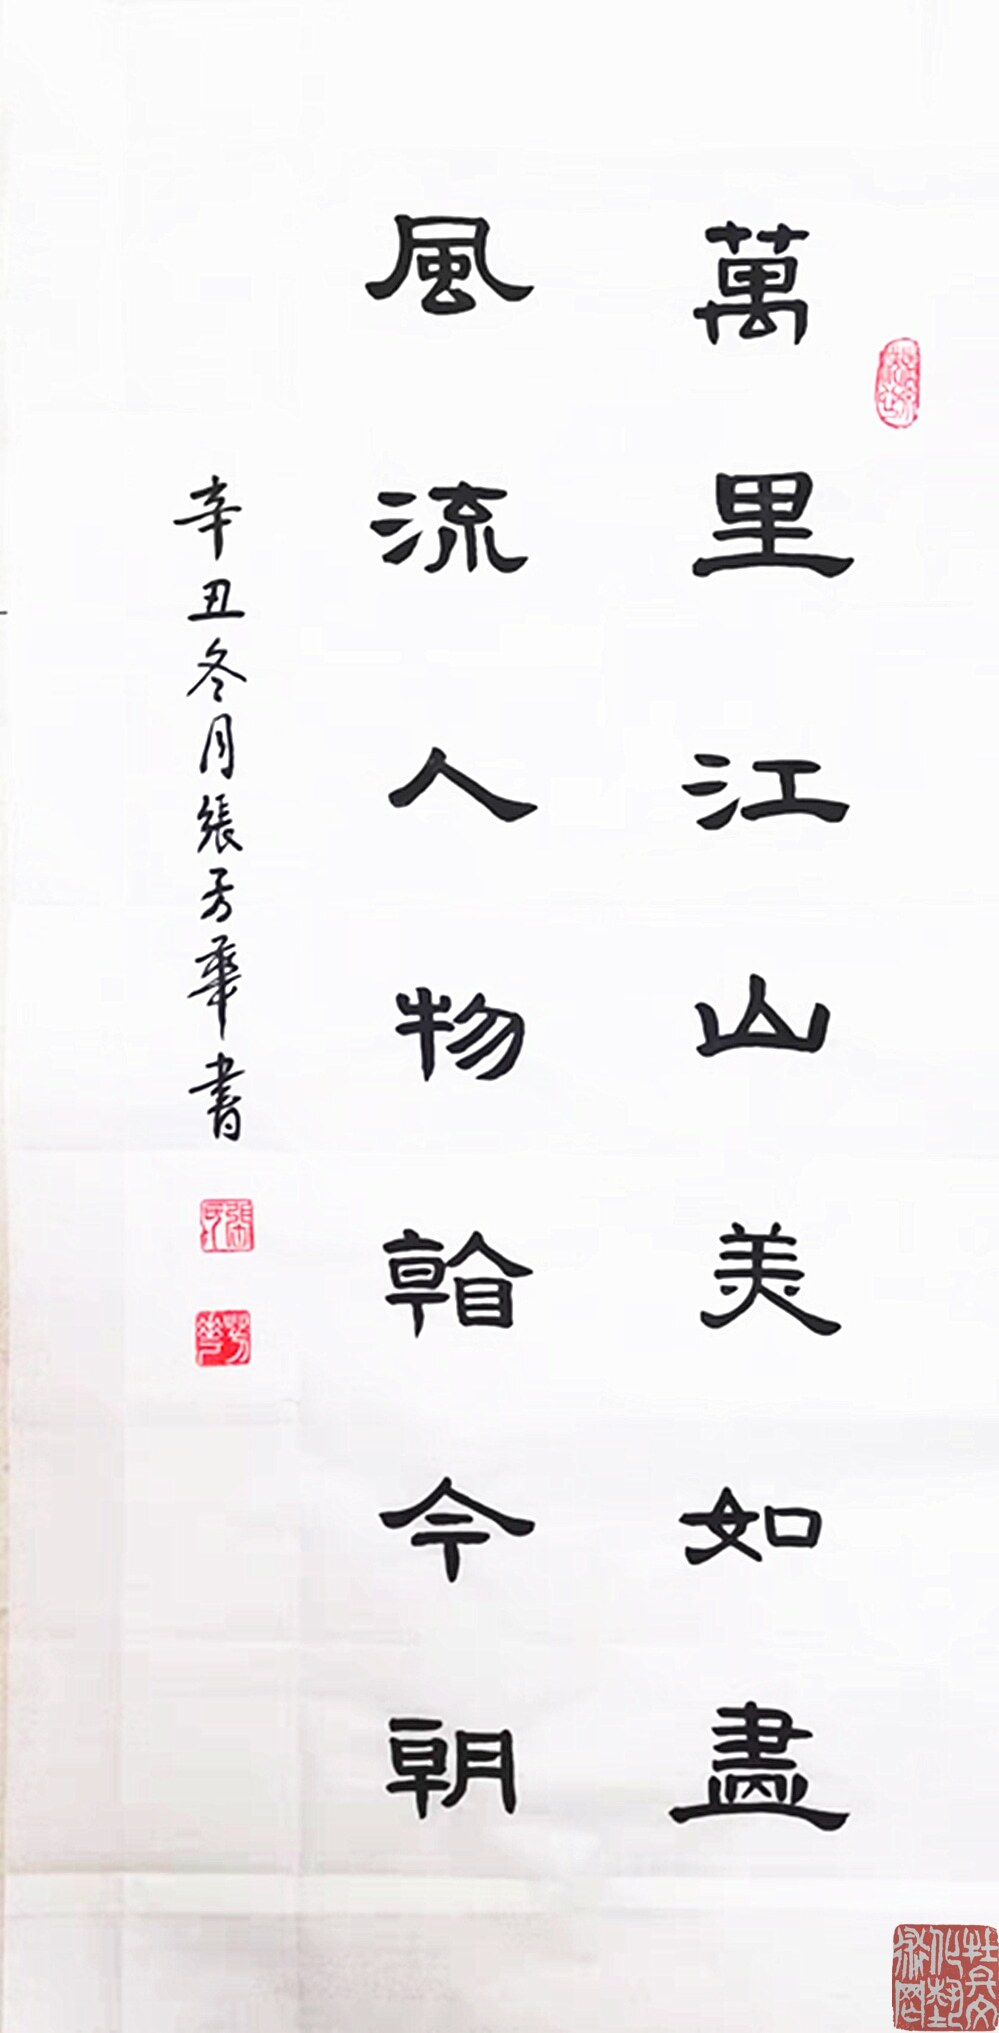 萬里江山美如盡
風流人物看今朝
辛丑冬月張芳華書
芳華